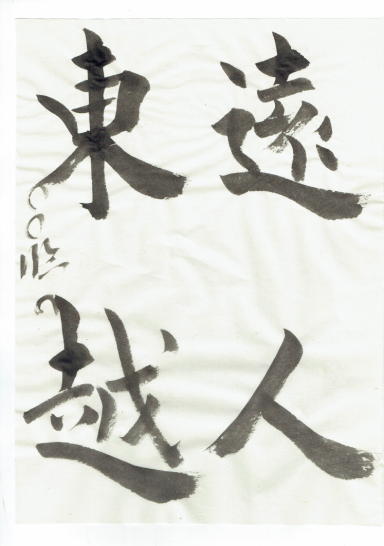 遠人
東越